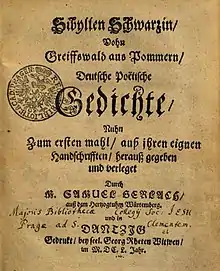 Sibyllen Schwarzin/
Vohn
Greiffswald aus Pommern/
Deutsche Poëtische
Gedichte/
Nuhn
Zum ersten mahl/ auß ihren eignen
Handschrifften/ herauß gegeben
und verleget
Durch
M. SAMUEL GERLACH/
auß dem Hertzogtuhm Würtemberg.
Majoris Bibliothecæ Collegij Soc. IESU
Pragæ ad S. Clementem.
und in
DANTZIG
Gedrukt/ bey seel. Georg Rheten Witwen/
im M. DC. L. Jahr.